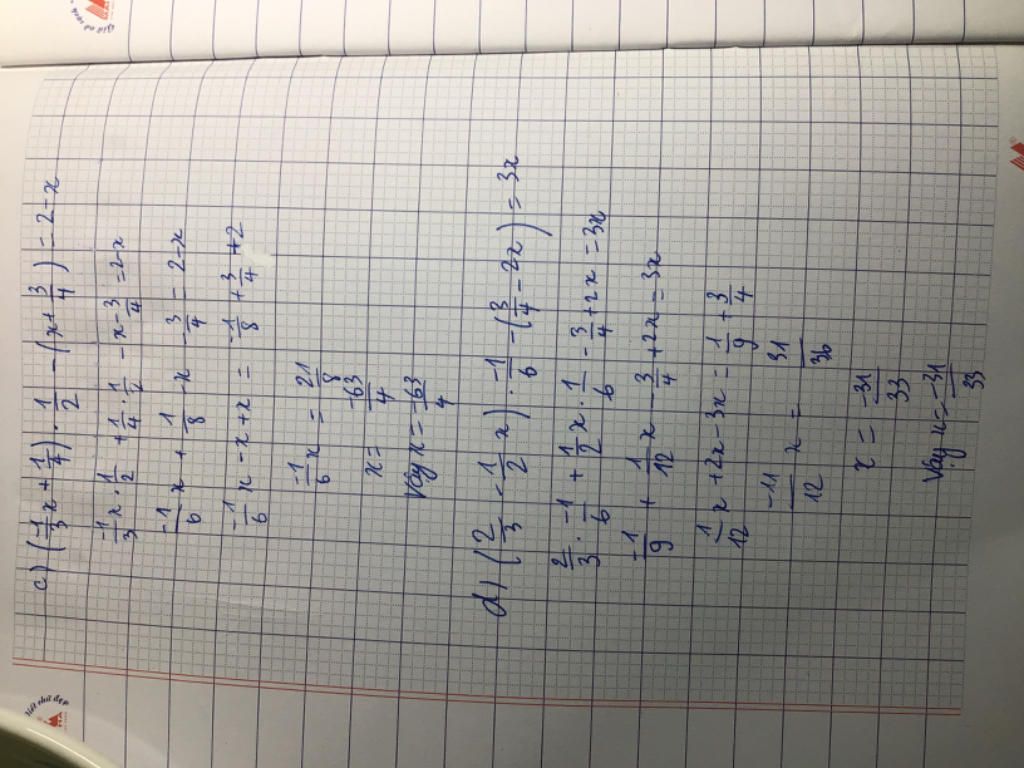 c) (-1/3 x + 1/4) . 1/2 - (x + 3/4) = 2 - x
-1/3 x . 1/2 + 1/4 . 1/2 - x - 3/4 = 2 - x
-1/6 x + 1/8 - x - 3/4 = 2 - x
-1/6 x - x + x = -1/8 + 3/4 + 2
-1/6 x = 21/8
x = -63/4
Vậy x = -63/4
d) (2/3 - 1/2 x) . -1/6 - (3/4 - 2x) = 3x
2/3 . -1/6 + 1/2 x . 1/6 - 3/4 + 2x = 3x
-1/9 + 1/12 x - 3/4 + 2x = 3x
1/12 x + 2x - 3x = 1/9 + 3/4
-11/12 x = 31/36
x = -31/33
Vậy x = -31/33